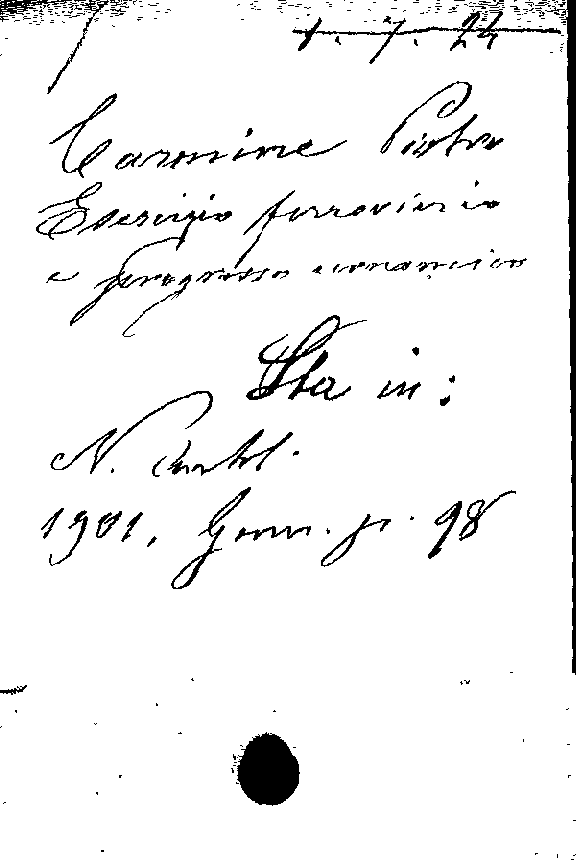 1. 7. 24
Carmine Pietro
Esercizio ferroviario
e progresso economico
Sta in:
N. Antol.
1901, Genn. p. 98